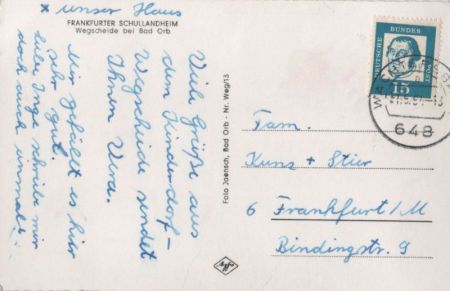 x unser Haus
FRANKFURTER SCHULLANDHEIM
Wegscheide bei Bad Orb
Viele Grüße aus
dem Kinderdorf-
Wegscheide sendet
Ihnen Vera.
Mir gefällt es hier
sehr gut.
liebe Inge schreibe mir
doch auch einmal!
Foto Jaensch, Bad Orb - Nr. Weg/13
DEUTSCHE BUNDESPOST
15
648
Fam.
Kunz + Stier
6 Frankfurt/M
Bindingstr. 9
Agfa